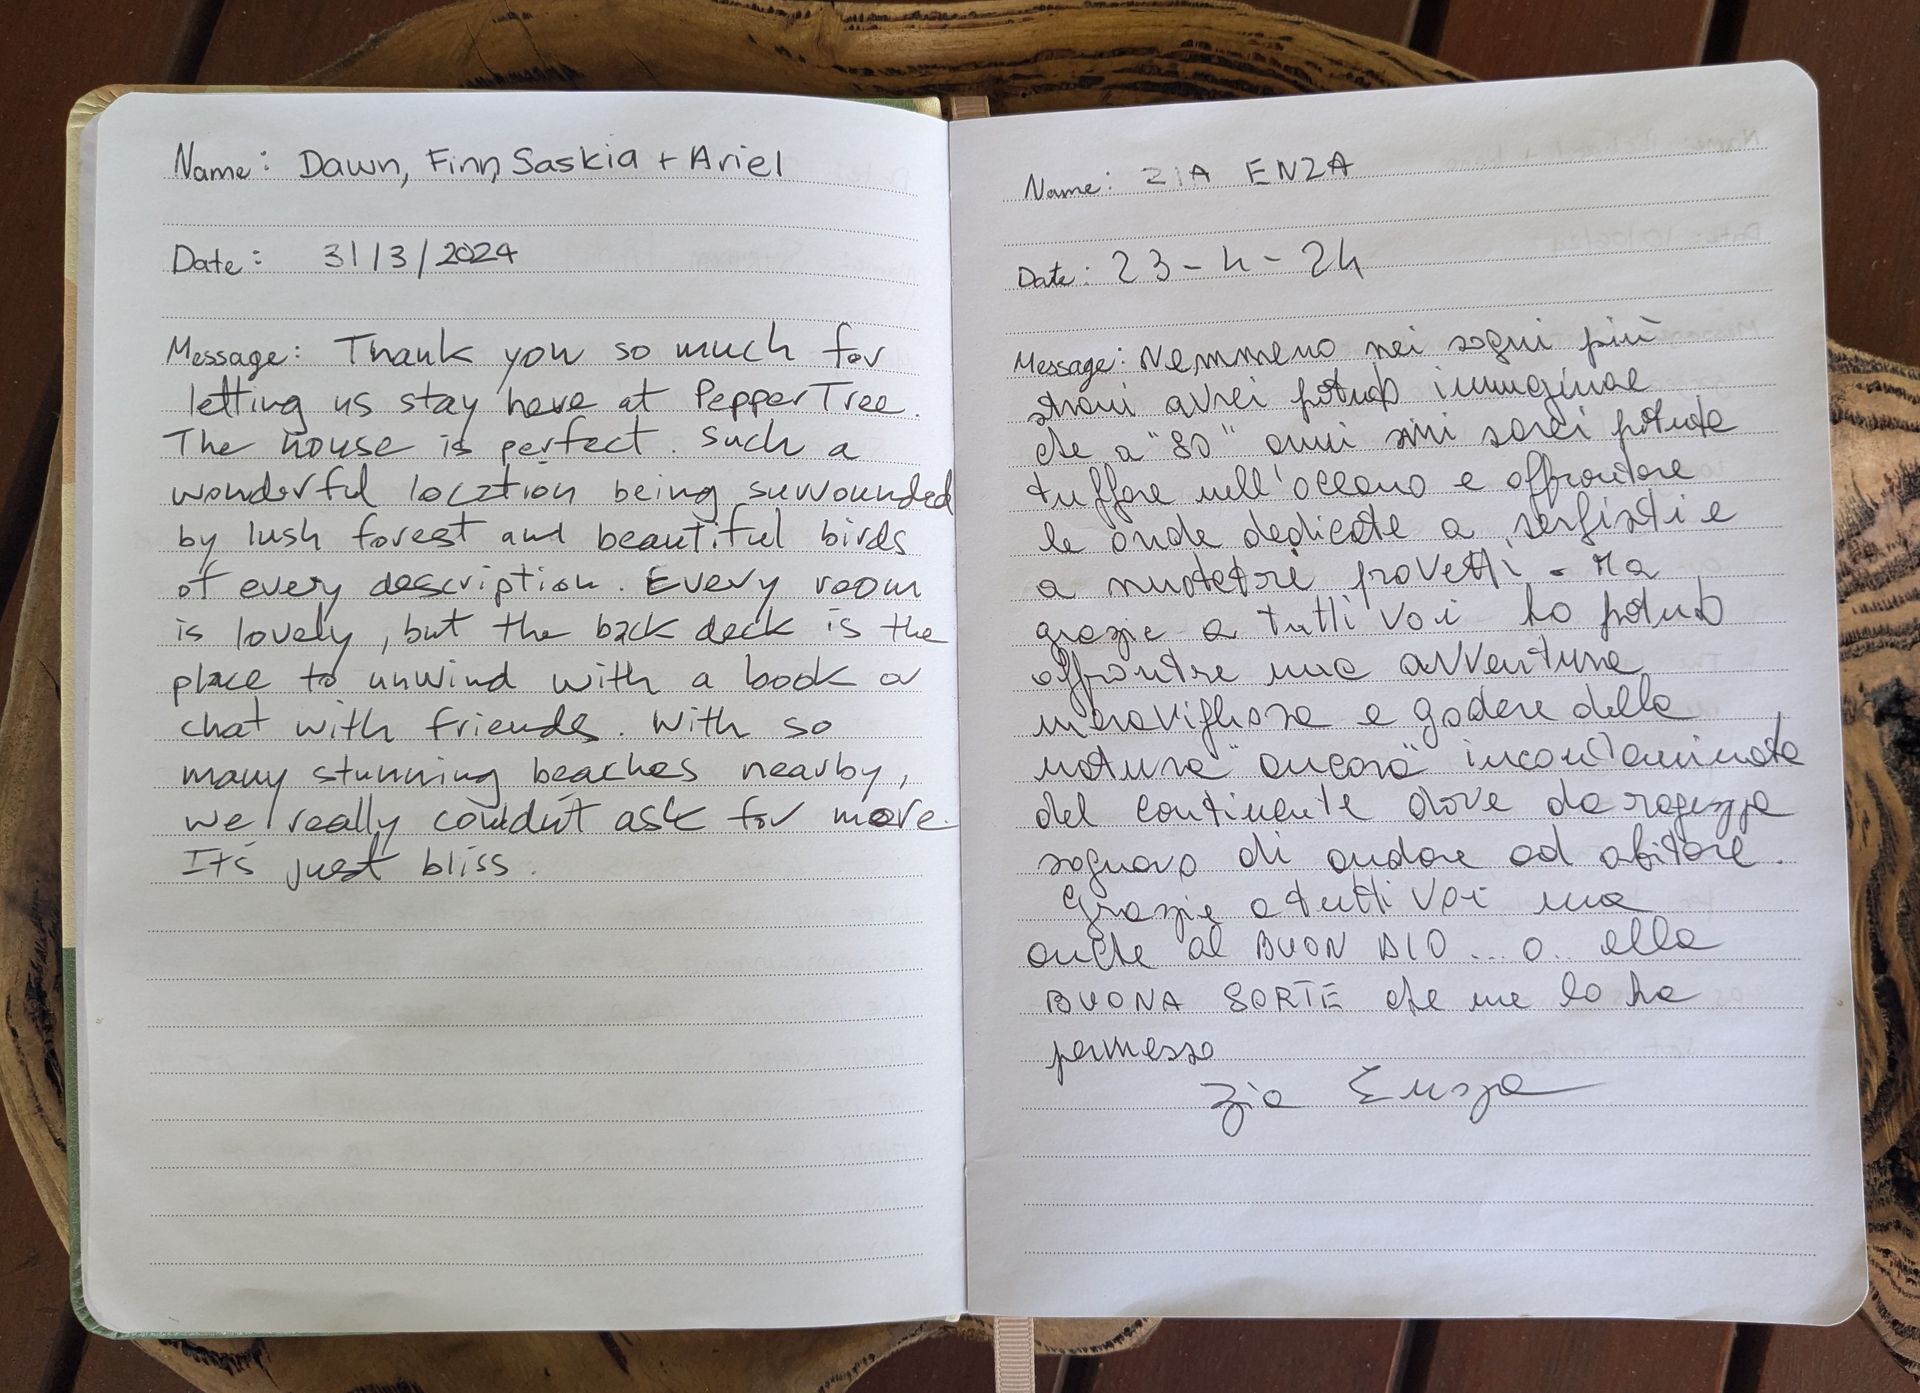 Name: Dawn, Finn, Saskia + Ariel
Date: 31/3/2024
Message: Thank you so much for
letting us stay here at PepperTree.
The house is perfect. Such a
wonderful location being surrounded
by lush forest and beautiful birds
of every description. Every room
is lovely, but the back deck is the
place to unwind with a book or
chat with friends. With so
many stunning beaches nearby,
we really couldn't ask for more.
It's just bliss.
Name: ZIA ENZA
Date: 23-4-24
Message: Nemmeno nei sogni più
strani avrei potuto immaginare
che a "80" anni mi sarei potuta
tuffare nell'oceano e affrontare
le onde dedicate a serfisti e
a nuotatri provetti. Ma
grazie a tutti voi ho potuto
affrontare una avventura
meravigliosa e godere della
natura "ancora" incontaminata
del continente dove da ragazza
sognavo di andare ad abitare.
Grazie a tutti voi ma
anche al BUON DIO... o.. alla
BUONA SORTE che me lo ha
permesso
Zia Enza